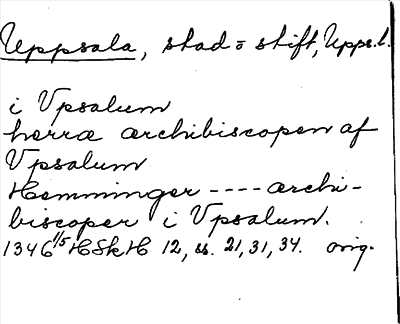 Uppsala, stad o stift, Upps. l.
i Vpsalum
herra ærchibiscopen af
Vpsalum
Hemminger ---- ærchi-
biscoper i Vpsalum.
1346 1/5 HSkH 12, ss. 21, 31, 34. orig.